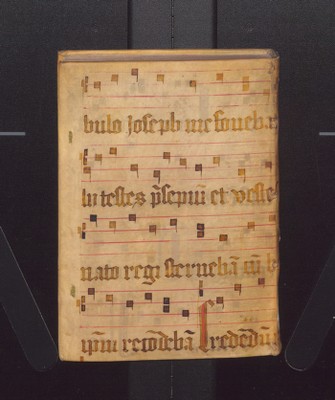 bulo Joseph me foueba
lu testes p̄sepiū et veste
nato regi sternebā cū
ipm̄ reco᷑debā Credēdū